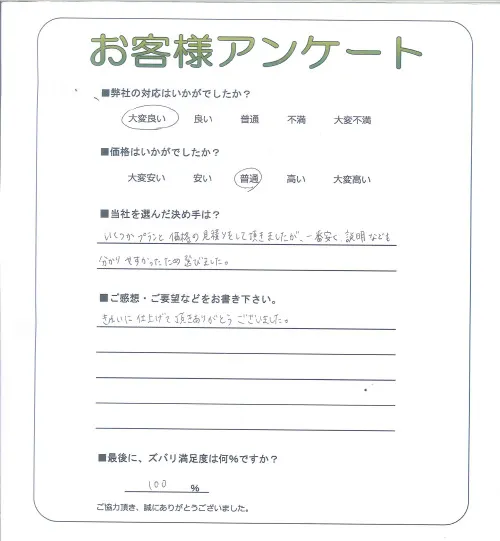 お客様アンケート
■弊社の対応はいかがでしたか？
大変良い 良い 普通 不満 大変不満
■価格はいかがでしたか？
大変安い 安い 普通 高い 大変高い
■当社を選んだ決め手は？
いくつかプランと価格の見積りをして頂きましたが、一番安く説明なども
分かりやすかったため選びました。
■ご感想・ご要望などをお書き下さい。
きれいに仕上げて頂きありがとうございました。
■最後に、ズバリ満足度は何％ですか？
100 ％
ご協力頂き、誠にありがとうございました。